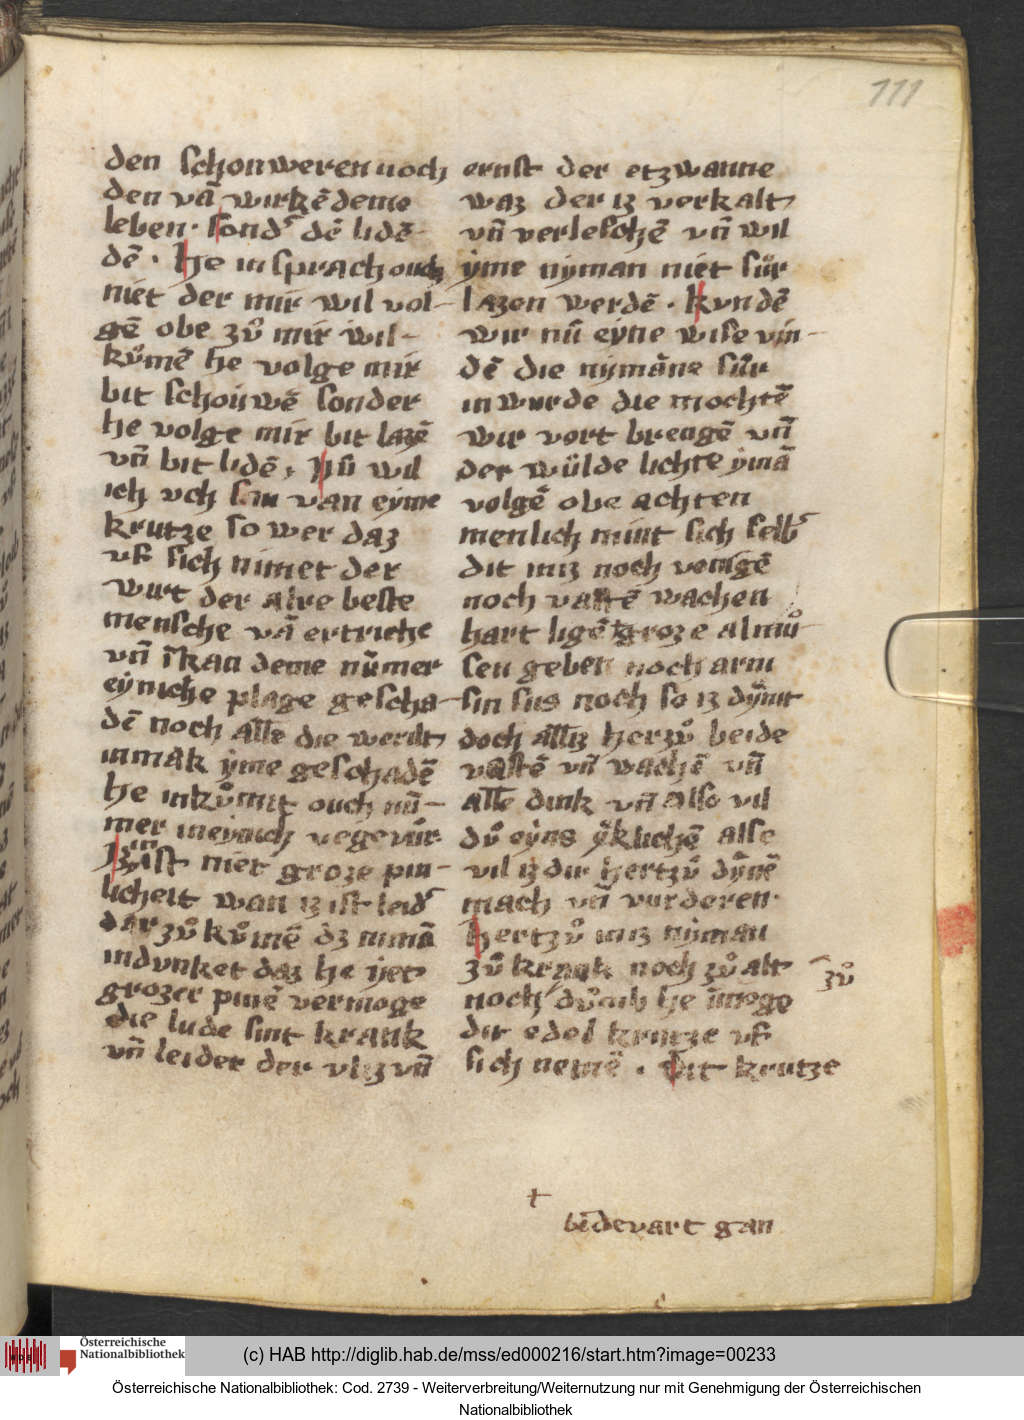 111
den schonweren noch
den vā wirkēdeme
leben · sond᷒ dē lidē-
dē · he in sprach ouch
niet der mir wil vol-
gē obe zuͦ mir wil-
kuͦmē he volge mir
bit schouwē sonder
he volge mir bit lazē
vn̄ bit lidē, Nu wil
ich vch van eyme
krutze so wer daz
vf sich nimet der
wirt der alre beste
mensche vā ertriche
vn̄ kan deme nūmer
eyniche plage gescha-
dē noch alle die werilt
inmak yme geschadē
he inkuͦmit ouch nū-
mer in eynich vegevur
ist niet groze pin-
licheit wan iz ist leid᷒
dar zuͦ kuͦmē dz nimā
indvnket daz he iet
grozer pinē vermoge
die lude sint krank
vn̄ leider der vliz vn̄
ernst der etzwanne
waz der iz verkalt
vn̄ verleschē vn̄ wil
yme nyman niet sur
lazen werdē · kvndē
wir nu eyne wise vin-
dē die nymāne sur
inwurde die mochtē
wir vort brengē vn̄
der wulde lichte ymā
volgē obe achten
menlich mint sich selb᷒
dit iniz noch venigē
noch vastē wachen
hart ligē groze almuͦ
sen geben noch arm
sin sus noch so iz dynit
doch alliz herzuͦ beide
vastē vn̄ wachē vn̄
alle dink vn̄ also vil
duͦ eyns yklichē alse
vil iz dir hertzuͦ dynē
mach vn̄ vurderen ·
hertzuͦ iniz nyman
zuͦ krank noch zuͦ alt
zuͦ
noch duͦmb he īmoge
dit edel krutze vf
sich nemē · Dit krutze
bidevart gan
Österreichische
Nationalbibliothek
(c) HAB http://diglib.hab.de/mss/ed000216/start.htm?image=00233
Österreichische Nationalbibliothek: Cod. 2739 - Weiterverbreitung/Weiternutzung nur mit Genehmigung der Österreichischen
Nationalbibliothek